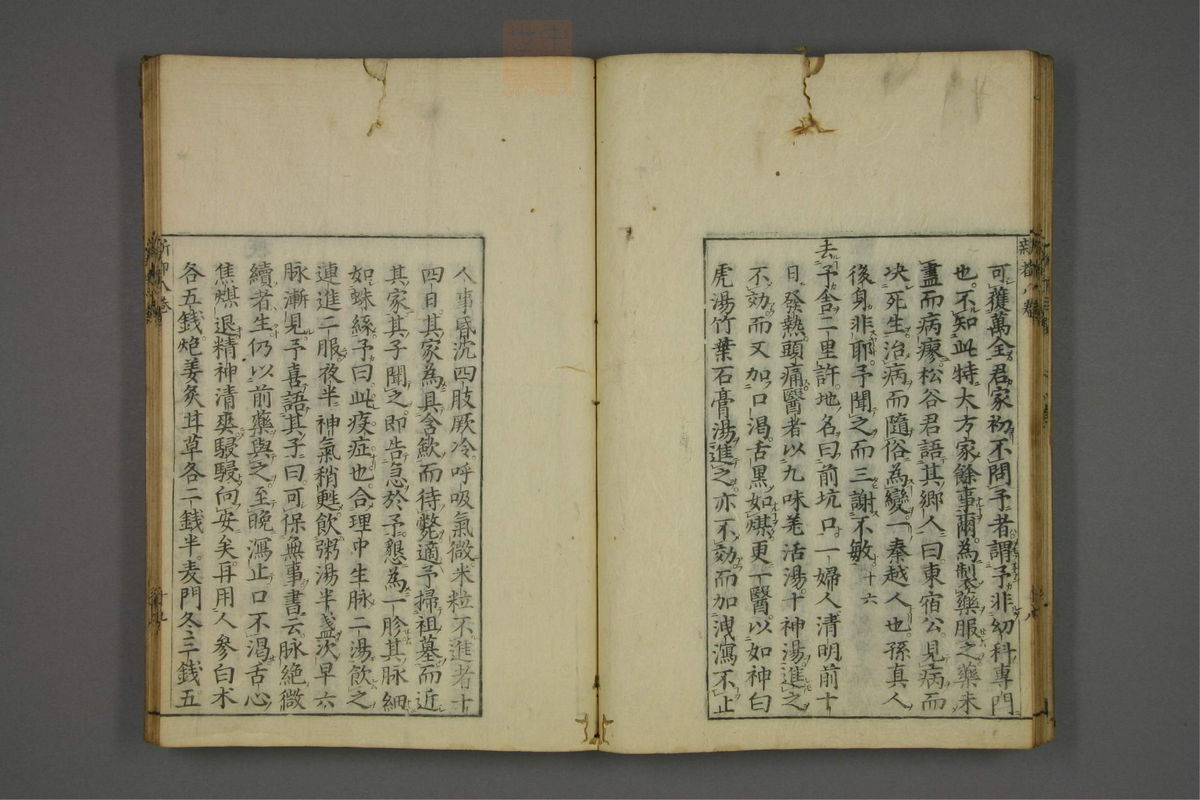 可獲萬全君家初不問予者謂予非幼科專門
也不知此特大方家餘事爾為製藥服之藥未
盡而病瘳松谷君語其鄉人曰東宿公見病而
决死生治病而隨俗為變一秦越人也孫真人
後身非耶予聞之而三謝不敏十六
去予舍二里許地名曰前坑口一婦人清明前十
日發熱頭痛醫者以九味羌活湯十神湯進之
不効而又加口渴舌黑如煤更一醫以如神白
虎湯竹葉石膏湯進之亦不効而加洩瀉不止
人事昏沈四肢厥冷呼吸氣微米粒不進者十
四日其家為具含歛而待斃適予掃祖墓而近
其家其子聞之即告急於予懇為一胗其脉細
如蛛絲予曰此疫症也合理中生脉二湯飲之
連進二服夜半神氣稍甦飲粥湯半盞次早六
脉漸見予喜語其子曰可保無事書云脉絕微
續者生仍以前藥與之至晚瀉止口不渴舌心
焦煤退精神清爽駸駸向安矣再用人參白术
各五錢炮姜炙甘草各二錢半麦門冬三錢五